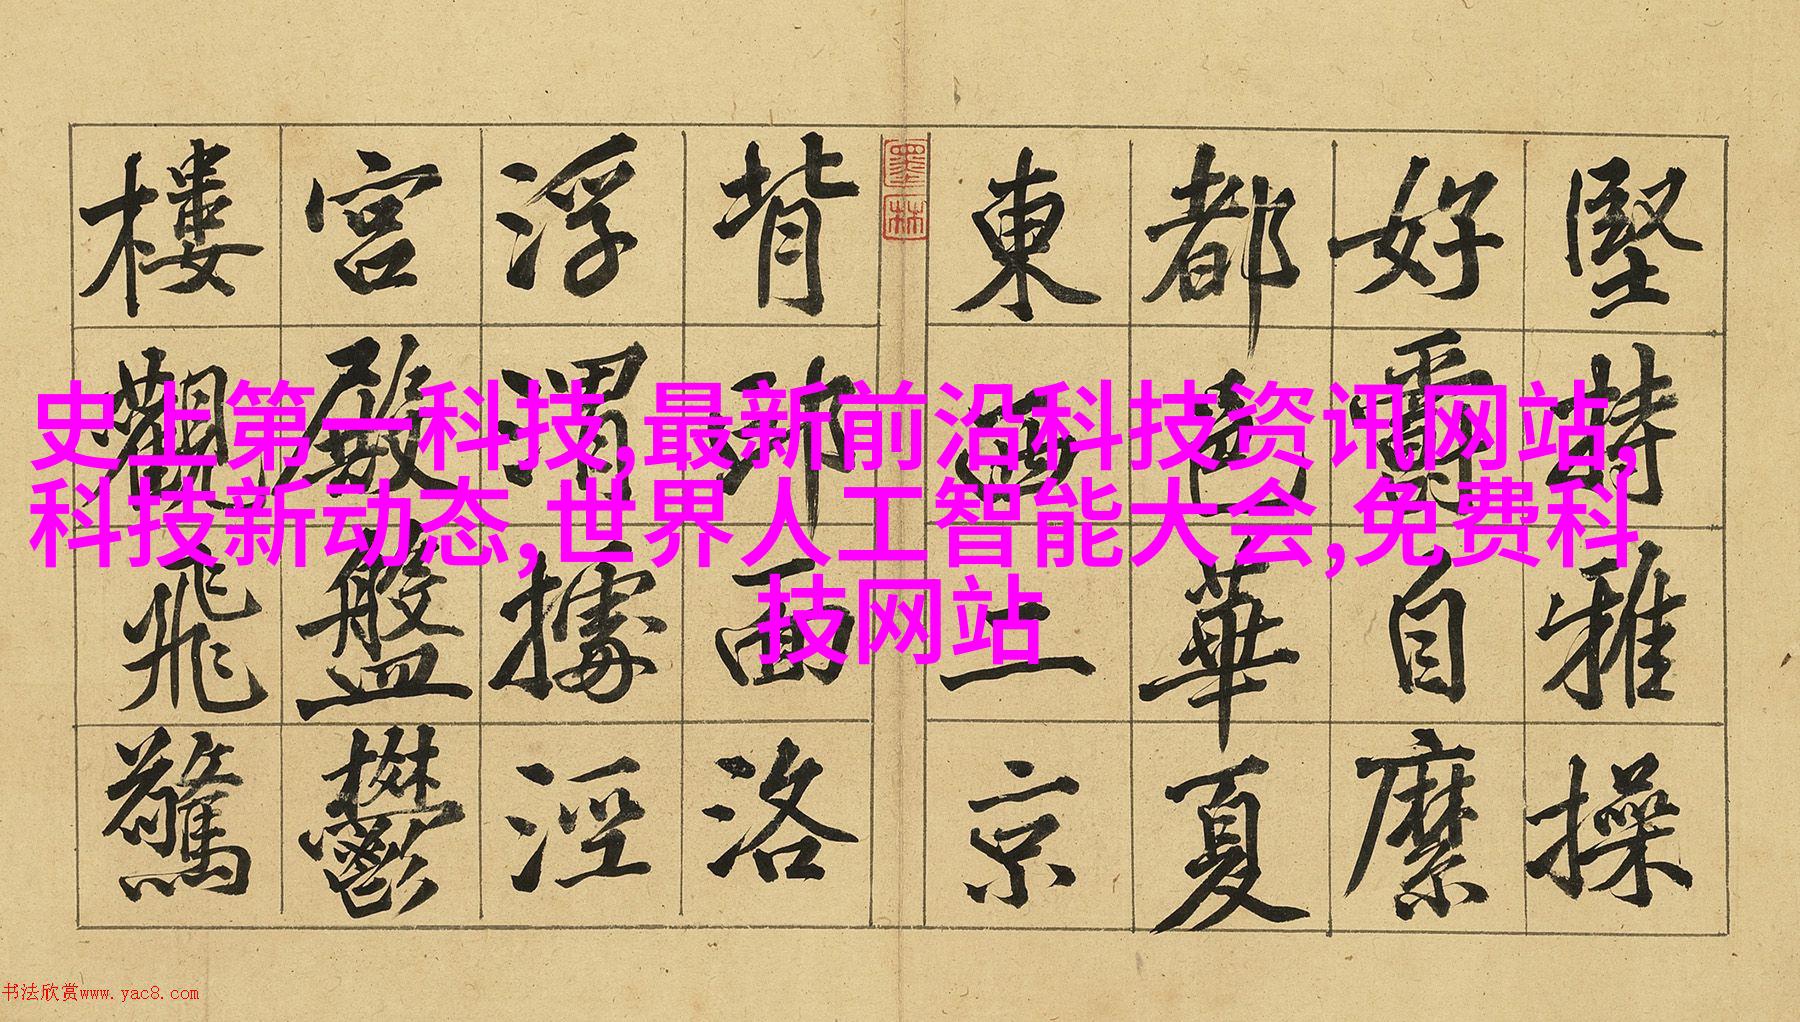 堅持雅操
好爵自縻
都邑華夏
東西二京
墨林
背邙面洛
浮渭據涇
宮殿盤鬱
樓觀飛驚
史上第一科技,最新前沿科技资讯网站,
科技新动态,世界人工智能大会,免费科
技网站
书法欣赏www.yac8.com